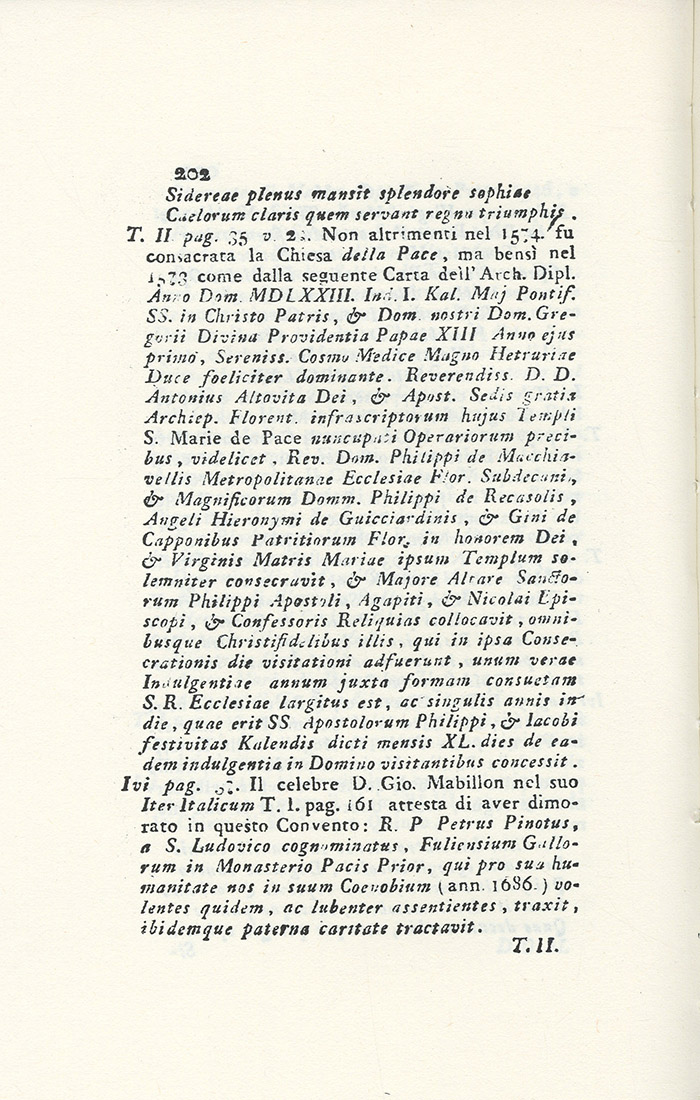 202
Sidereae plenus mansit splendore sophiae
Caelorum claris quem servant regna triumphis.
T. II pag. 35 v. Non altrimenti nel 1574. fu
consacrata la Chiesa della Pace, ma bensì nel
come dalla seguente Carta dell' Arch. Dipl.
Anno Dom. MDLXXIII. Ind. I. Kal. Maj Pontif.
SS. in Christo Patris, & Dom. nostri Dom. Gre-
gorii Divina Providentia Papae XIII Anno ejus
primo, Sereniss. Cosmo Medice Magno Hetruriae
Duce foeliciter dominante. Reverendiss. D. D.
Antonius Altovita Dei, & Apost. Sedis gratia
Archiep. Florent. infrascriptorum hujus Templi
S. Marie de Pace nuncupati Operariorum preci-
bus, videlicet, Rev. Dom. Philippi de Macchia-
vellis Metropolitanae Ecclesiae Flor. Subdecani,
& Magnificorum Domm. Philippi de Recasolis,
Angeli Hieronymi de Guicciardinis, & Gini de
Capponibus Patritiorum Flor. in honorem Dei,
& Virginis Matris Mariae ipsum Templum so-
lemniter consecravit, & Majore Altare Sancto-
rum Philippi Apostoli, Agapiti, & Nicolai Epi-
scopi, & Confessoris Reliquias collocavit, omni-
busque Christifidelibus illis, qui in ipsa Conse-
crationis die visitationi adfuerunt, unum verae
Indulgentiae annum juxta formam consuetam
S. R. Ecclesiae largitus est, ac singulis annis in
die, quae erit SS Apostolorum Philippi, & Iacobi
festivitas Kalendis dicti mensis XL. dies de ea-
dem indulgentia in Domino visitantibus concessit.
Ivi pag. Il celebre D. Gio. Mabillon nel suo
Iter Italicum T. I. pag. 161 attesta di aver dimo-
rato in questo Convento: R. P Petrus Pinotus,
a S. Ludovico cognominatus, Fuliensium Gallo-
rum in Monasterio Pacis Prior, qui pro sua hu-
manitate nos in suum Coenobium (ann. 1686.) vo-
lentes quidem, ac lubenter assentientes, traxit,
ibidemque paterna caritate tractavit.
T. II.